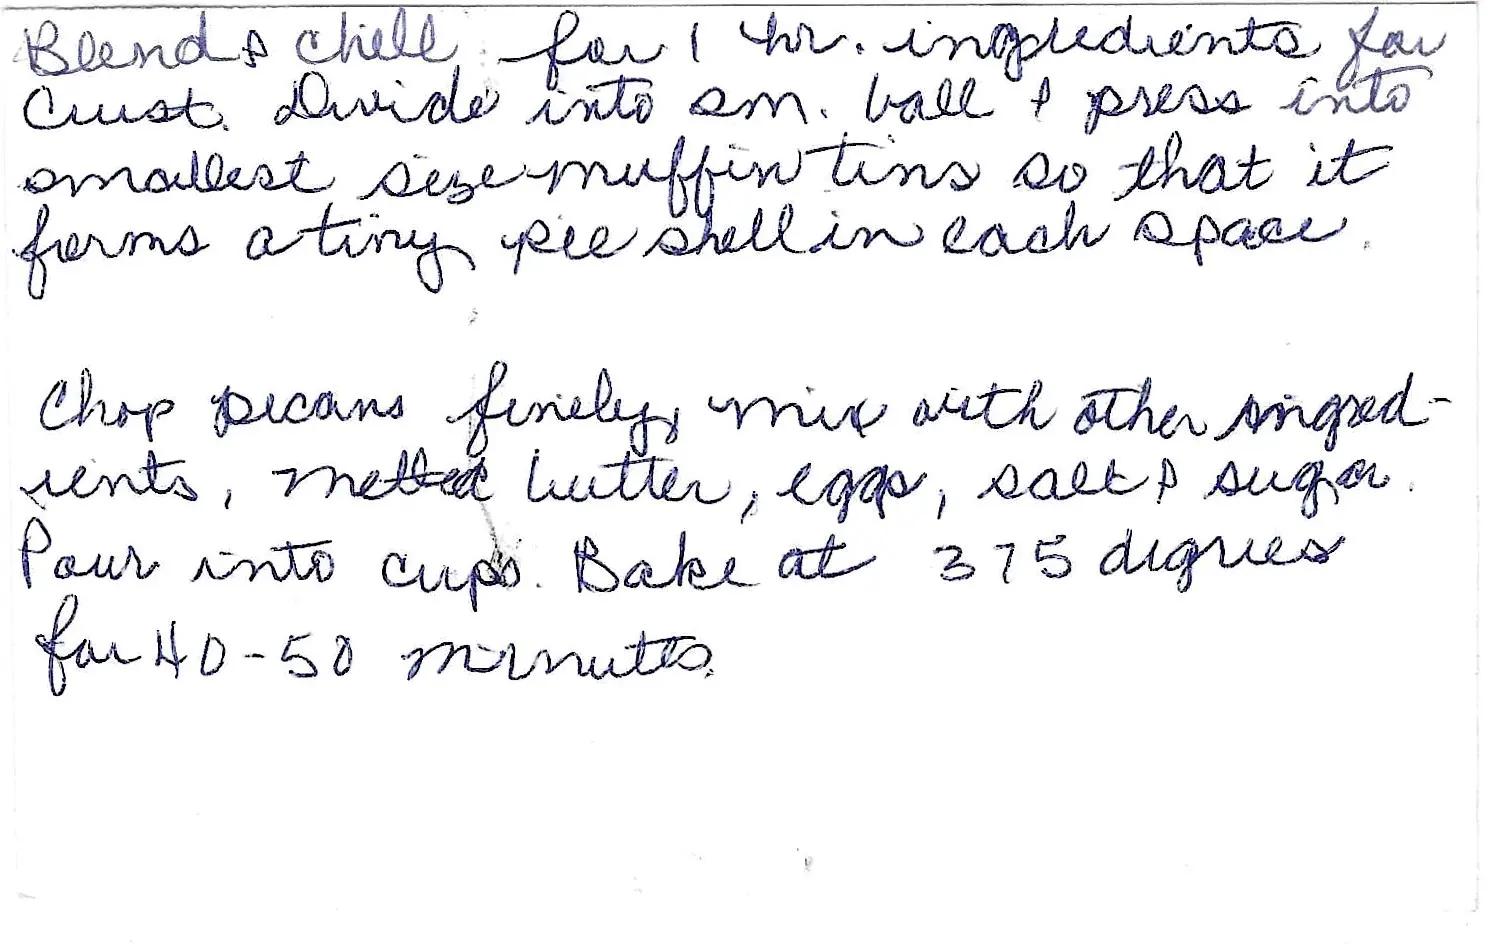 Blend & chill for 1 hr. ingredients for
Crust. Divide into sm. ball & press into
smallest size muffin tins so that it
forms a tiny pie shell in each space.
Chop pecans finely, mix with other ingred-
ients, melted butter, eggs, salt & sugar.
Pour into cups. Bake at 375 degrees
for 40-50 minutes.